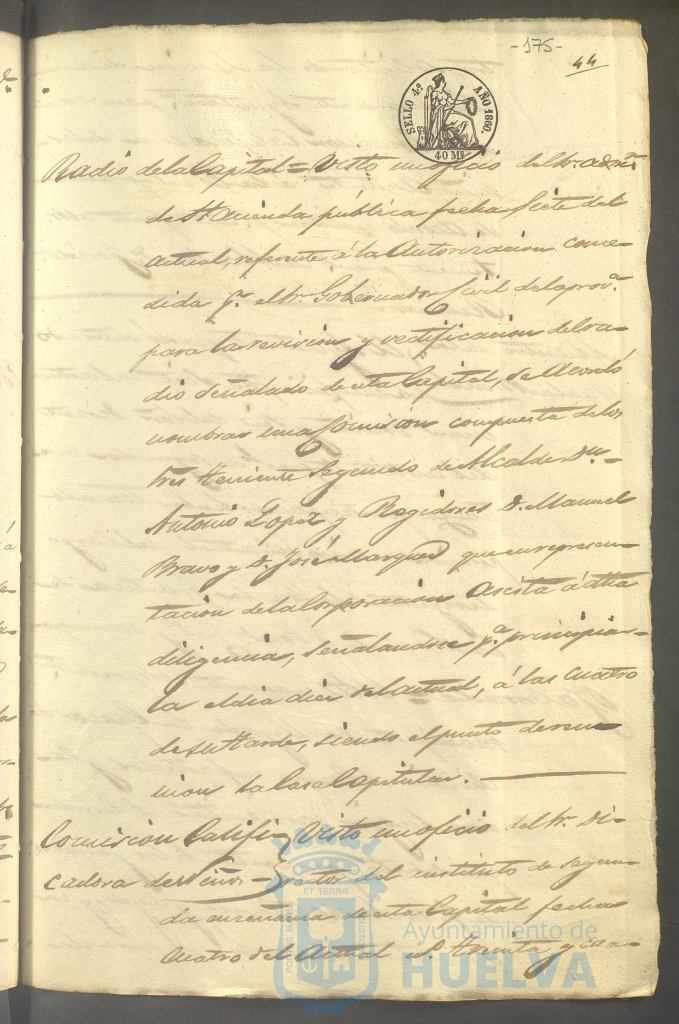 -175-
44
SELLO 4º AÑO 1860.
40 Ms
Radio de la Capital = Visto un oficio del Sr. admr.
de Hacienda pública fecha siete del
actual, referente á la autorizacion conce-
dida pr. el Sr. Gobernador Civil de la prova.
para la revision y rectificacion del ra-
dio señalado de esta Capital, se acordó
nombrar una Comision compuesta de los
Sres Teniente Segundo de Alcalde Dn.
Antonio Lopez y Regidores D. Manuel
Bravo y D. José Marquez que en represen-
tacion de la Corporacion asista á dha
diligencia, señalandose pa. principiar-
la el dia diez del actual, á las cuatro
de su tarde, siendo el punto de reu-
nion la Casa Capitular.
Comision Califi- Visto un oficio del Sr. Di-
cadora de Niños - rector del instituto de segun-
da enseñanza de esta Capital fecha
cuatro del actual nº. treinta y cua-
ET TERRÆ
Ayuntamiento de
HUELVA